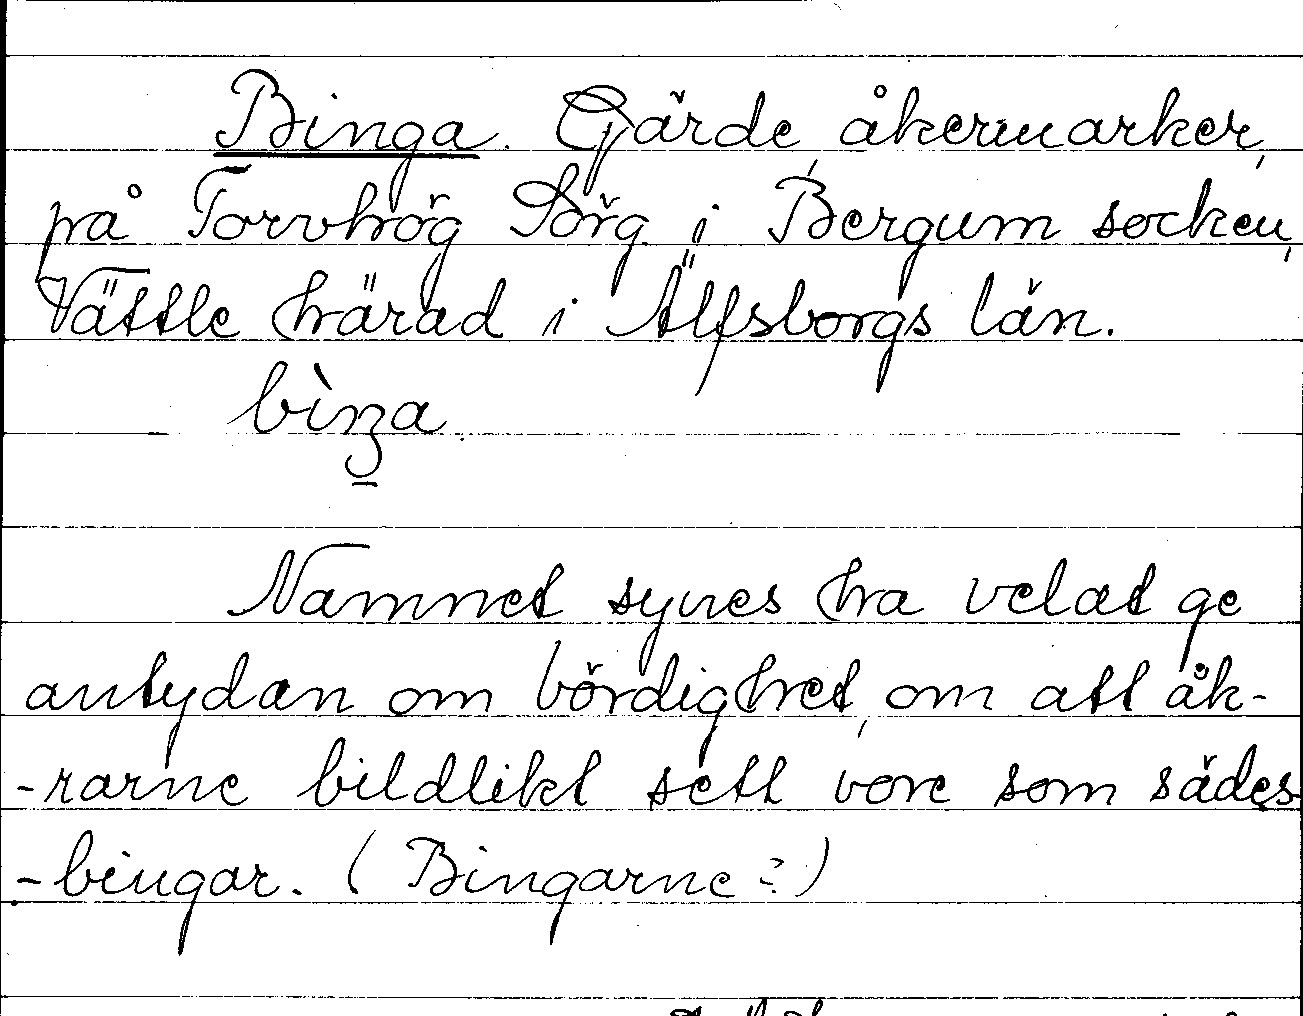 Binga. Gärde, åkermarker,
på Torvhög Sörg. i Bergum socken,
Vättle härad i Älfsborgs län.
bìnga.
Namnet synes ha velat ge
antydan om bördighet, om att åk-
-rarne bildlikt sett vore som sädes-
-bingar. (Bingarne?)